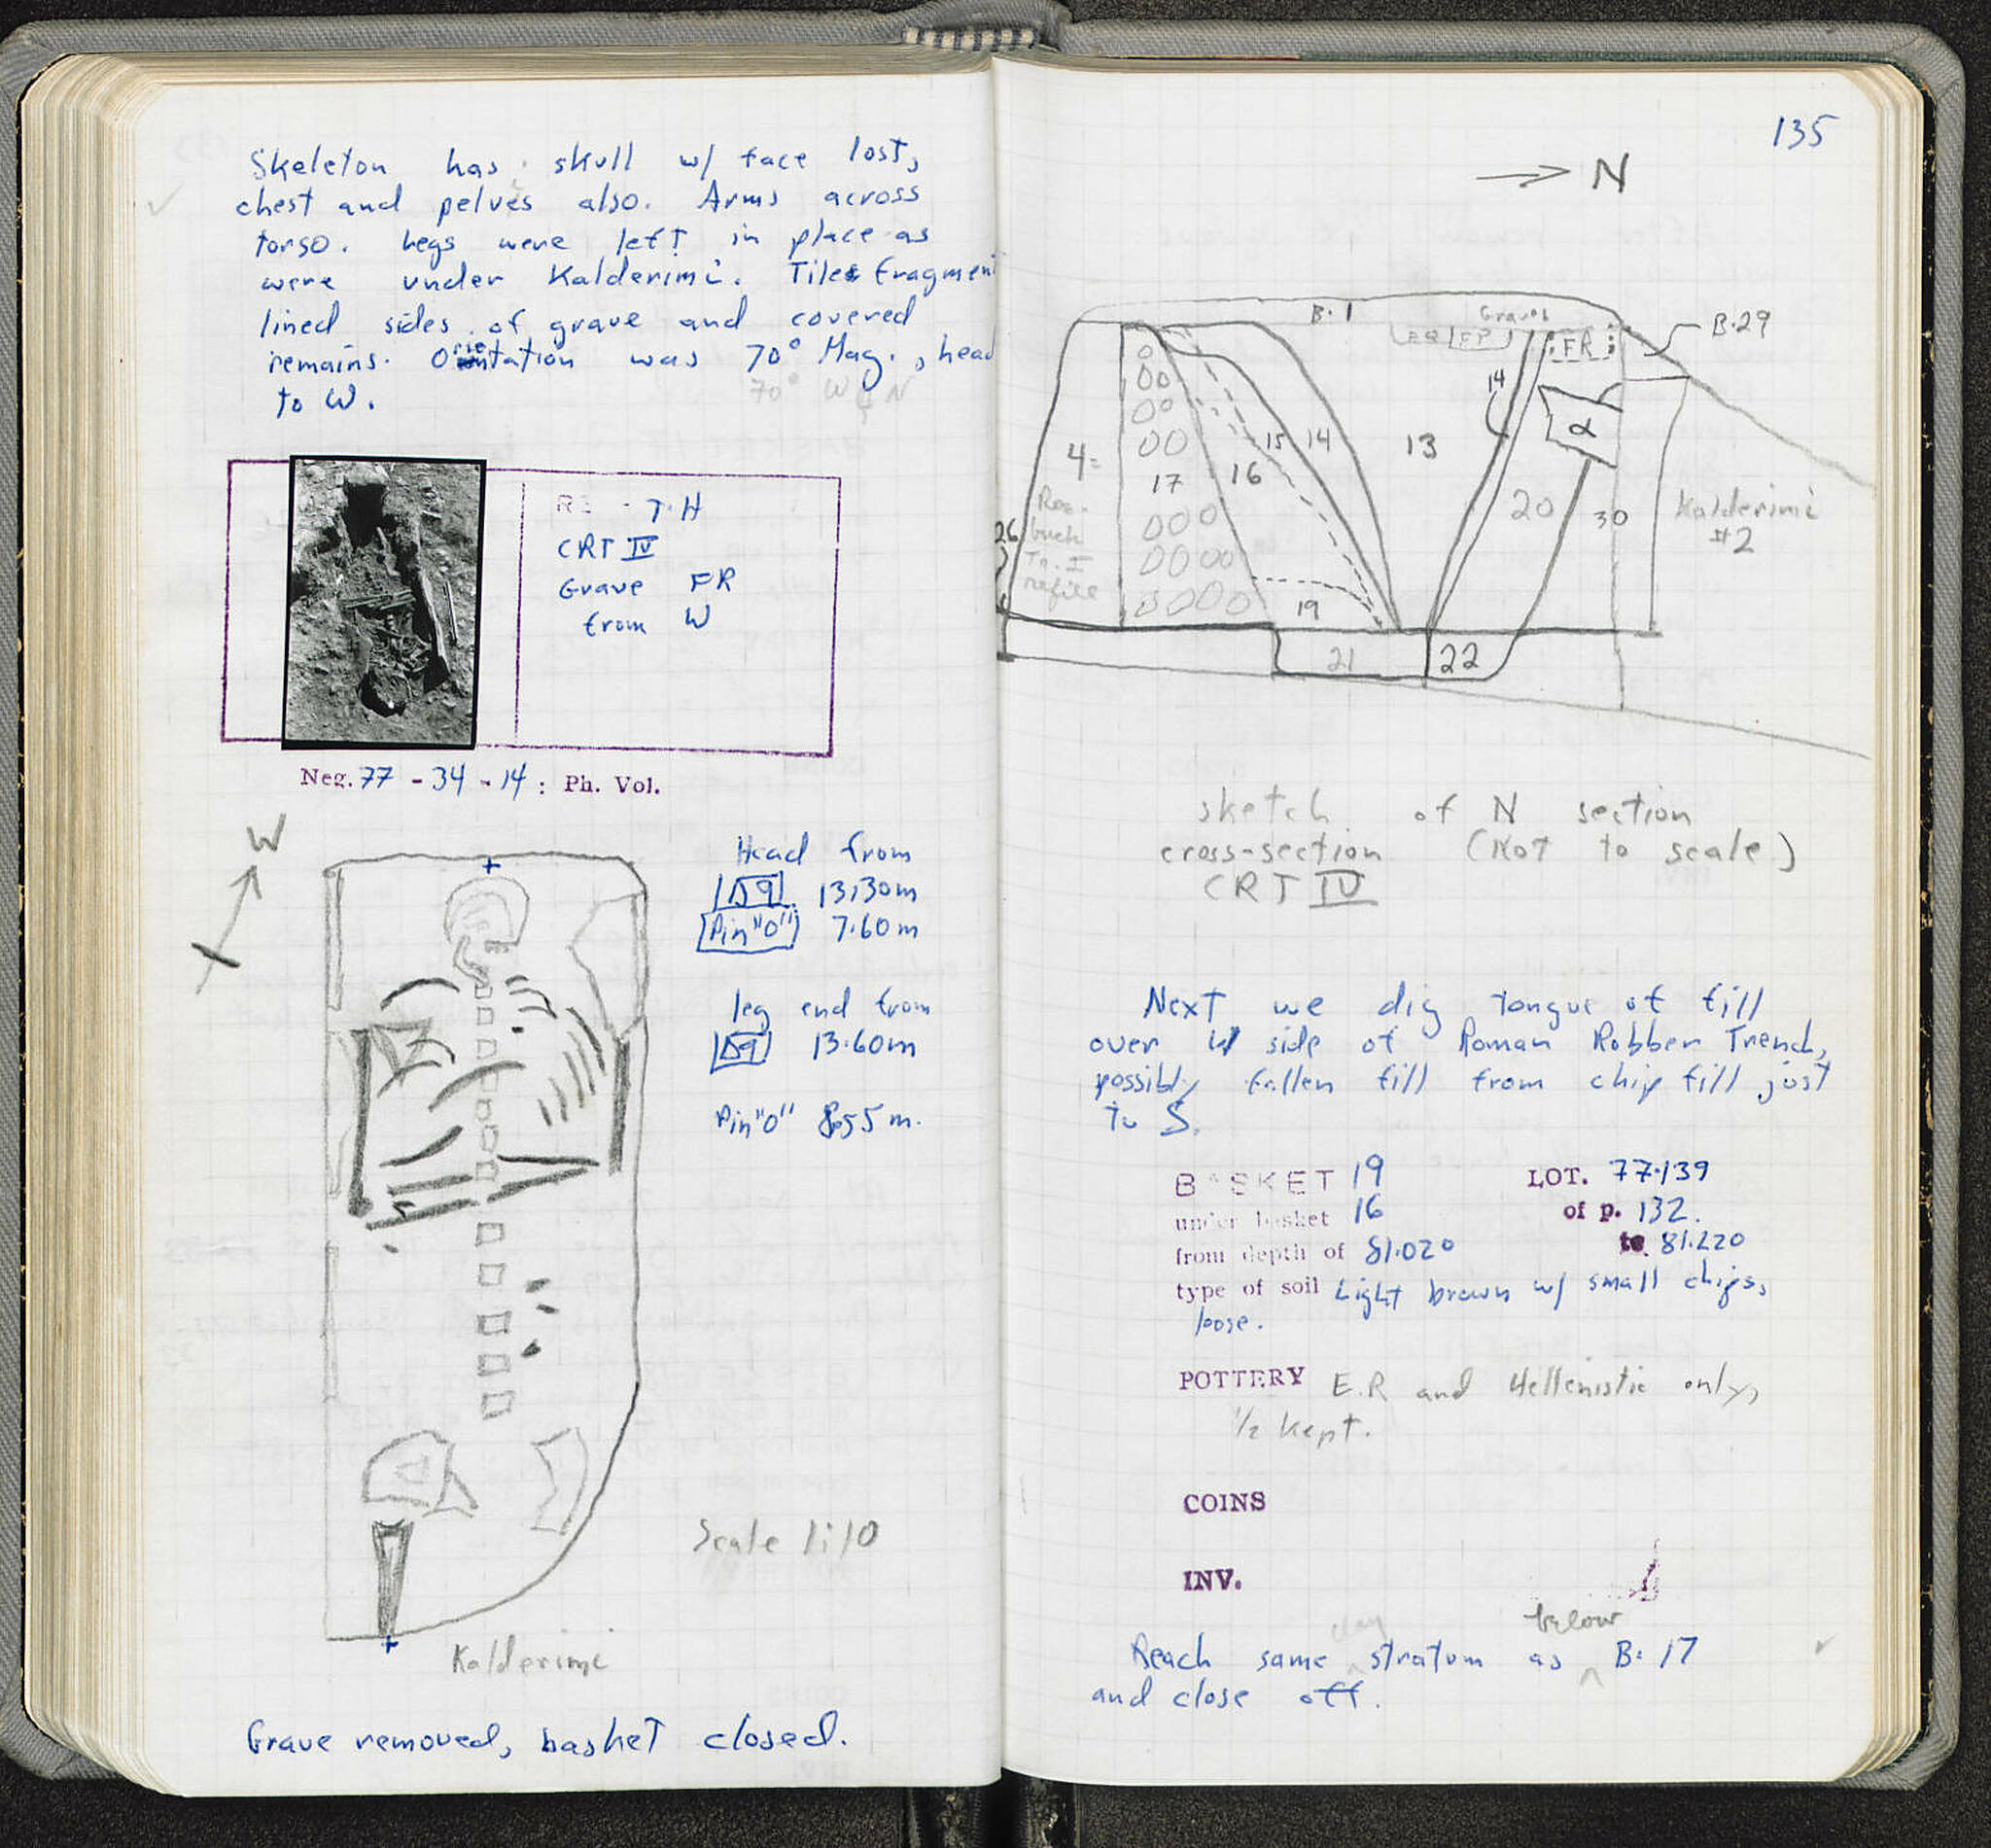 Skeleton has skull w/ face lost,
chest and pelves also. Arms across
torso. Legs were left in place as
were under Kalderimi. Tile fragment
lined sides of grave and covered
remains. Orientation was 70° Mag., head
to W.
70° W of N
T.H
CRT IV
Grave FR
from W
Neg. 77 - 34 - 14 : Ph. Vol.
W
Head from
Δ9 13.30m
Pin "0" 7.60m
leg end from
Δ9 13.60m
Pin "0" 8.55m.
Scale 1:10
Kalderimi
Grave removed, basket closed.
135
→ N
B. 1
Graves
B.29
FP
FR
14
α
4=
15
14
13
17
16
20
30
Kalderimi
#2
26
Tr. I
refill
19
21
22
sketch of N section
cross-section (Not to scale)
CRT IV
Next we dig tongue of fill
over W side of Roman Robber Trench,
possibly fallen fill from chip fill just
to S.
BASKET 19 LOT. 77-139
under basket 16 of p. 132.
from depth of 81.020 to 81.220
type of soil Light brown w/ small chips,
loose.
POTTERY E.R and Hellenistic only,
1/2 kept.
COINS
INV.
Reach same clay stratum as below B. 17
and close off.